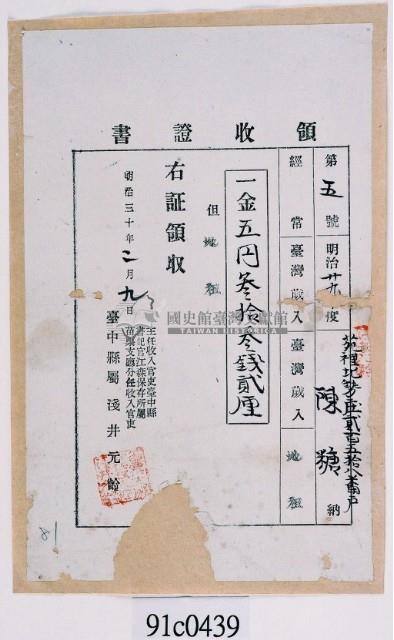 領收證書
第五號
明治廿九年度
苑裡
陳
納
經常
臺灣歲入
臺灣歲入
地租
一金五円叄拾叄錢貳厘
但地租
右証領収
明治三十年二月九日
主任收入官吏臺中縣
書記官江森保存所屬
苗栗支廳分任收入官吏
臺中縣屬淺井元齡
國史館臺灣文獻館
TAIWAN HISTORICA
81
91c0439